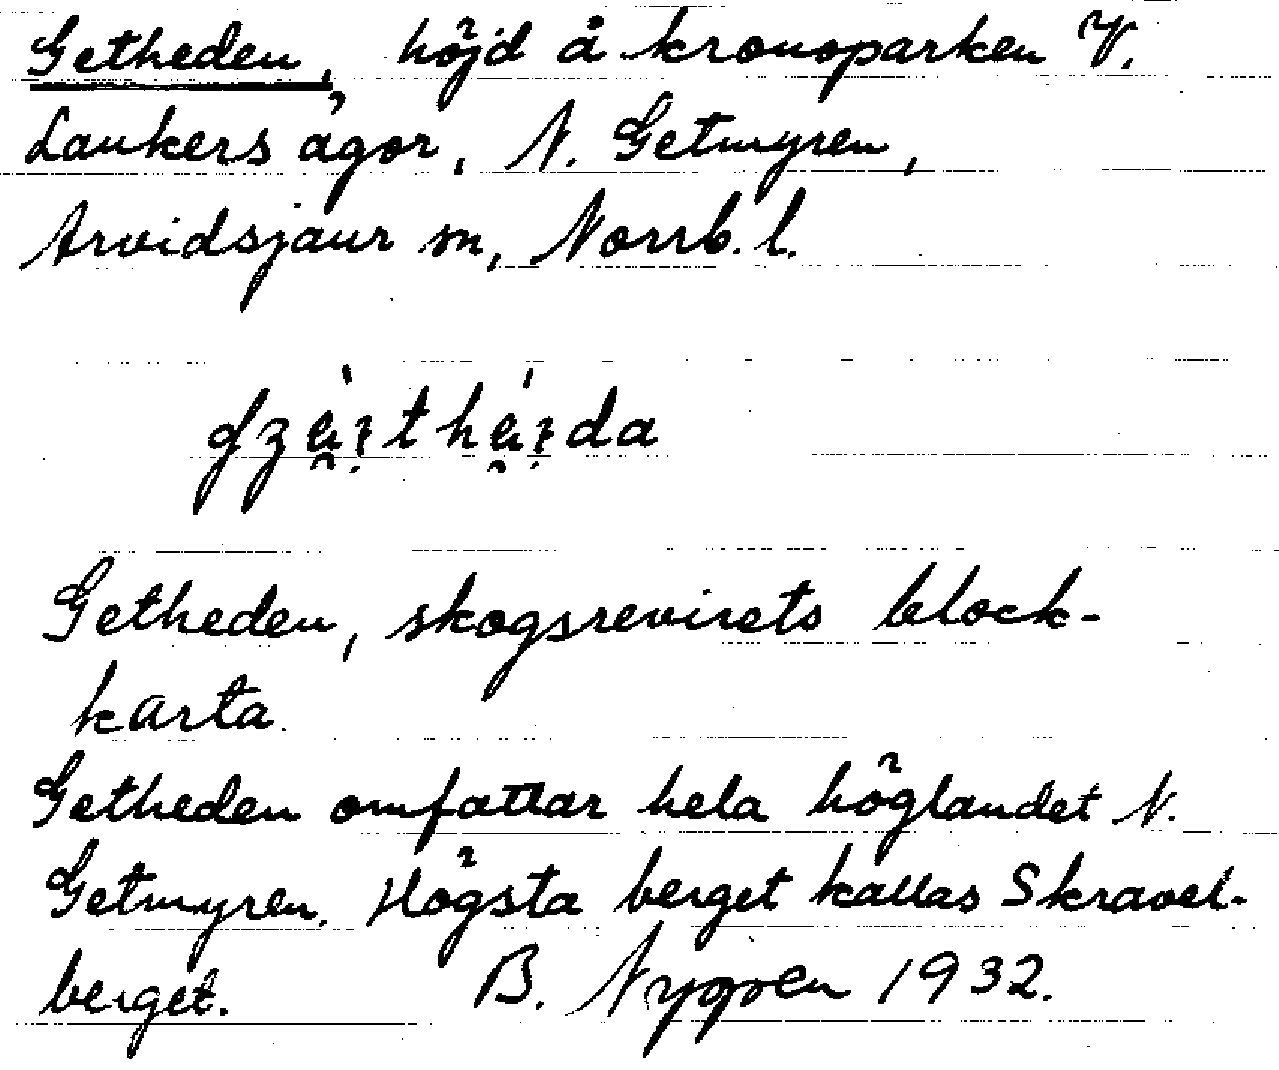 Getheden, höjd å kronoparken V.
Laukers ägor, N. Getmyren,
Arvidsjaur sn, Norrb. l.
Getheden, skogsrevirets block-
karta.
Getheden omfattar hela höglandet N.
Getmyren. Högsta berget kallas Skravel-
berget. B. Nygren 1932.